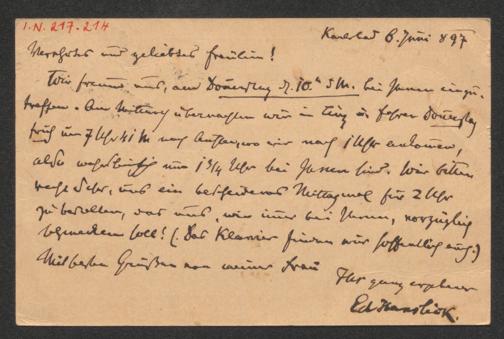 I.N. 217.214
Karlsbad 6. Juni 897
Verehrtes und geliebtes Fräulein!
Wir freuen uns, am Donnerstag d. 10. d M. bei Ihnen einzu-
treffen. Am Mittwoch übernachten wir in Eger u. fahren Donnerstag
früh um 7 Uhr 41 M nach wo wir nach 1 Uhr ankommen,
also wahrscheinlich um 1 3/4 Uhr bei Ihnen sind. Wir bitten
recht sehr, uns ein bescheidenes Mittagmal für 2 Uhr
zu bestellen, das uns, wie immer bei Ihnen, vorzüglich
schmecken soll! (Das Klavier finden wir hoffentlich auch.)
Mit besten Grüßen von meiner Frau
Ihr ganz ergebener
Ed Hanslick.